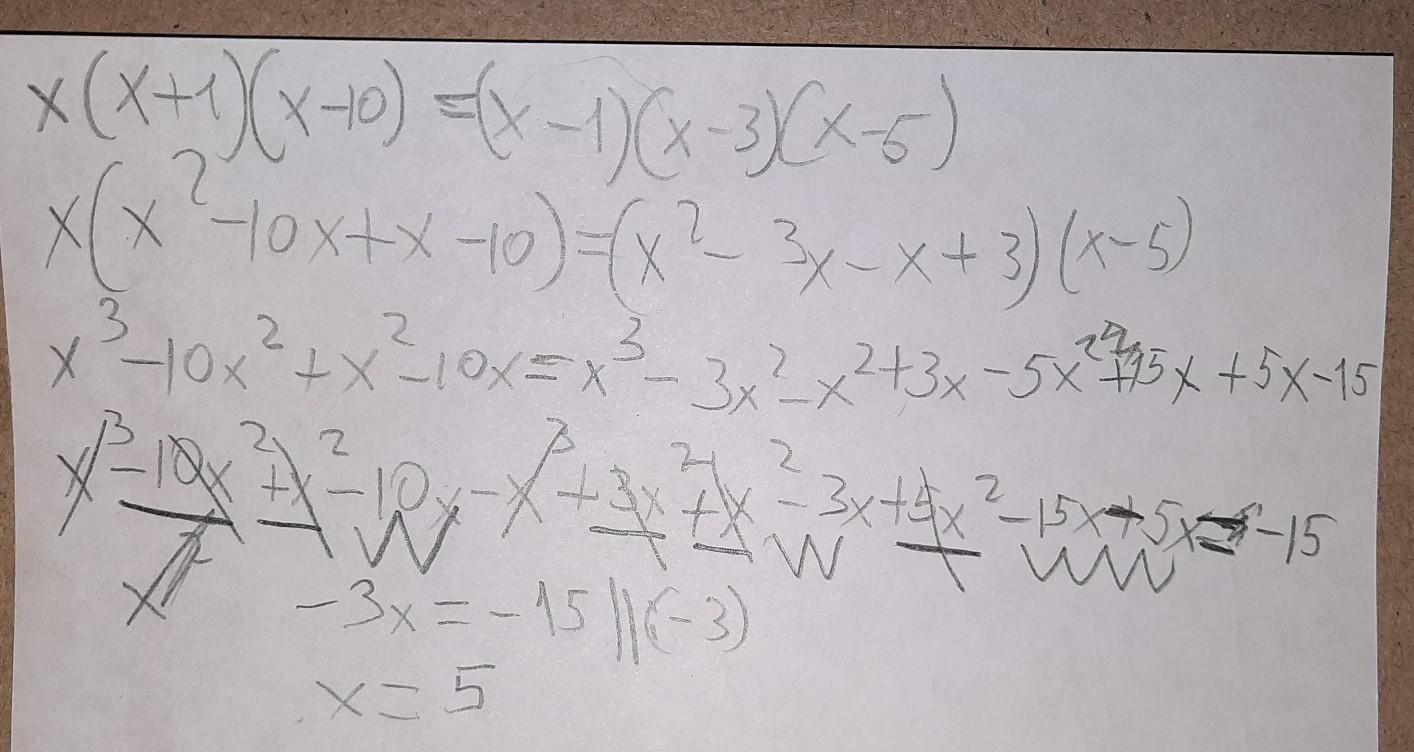 x(x+1)(x-10)=(x-1)(x-3)(x-5)
x(x²-10x+x-10)=(x²-3x-x+3)(x-5)
x³-10x²+x²-10x=x³-3x²-x²+3x-5x²+15x+5x-15
x³-10x²+x²-10x-x³+3x²+x²-3x+5x²-15x-5x=-15
-3x=-15||(-3)
x=5